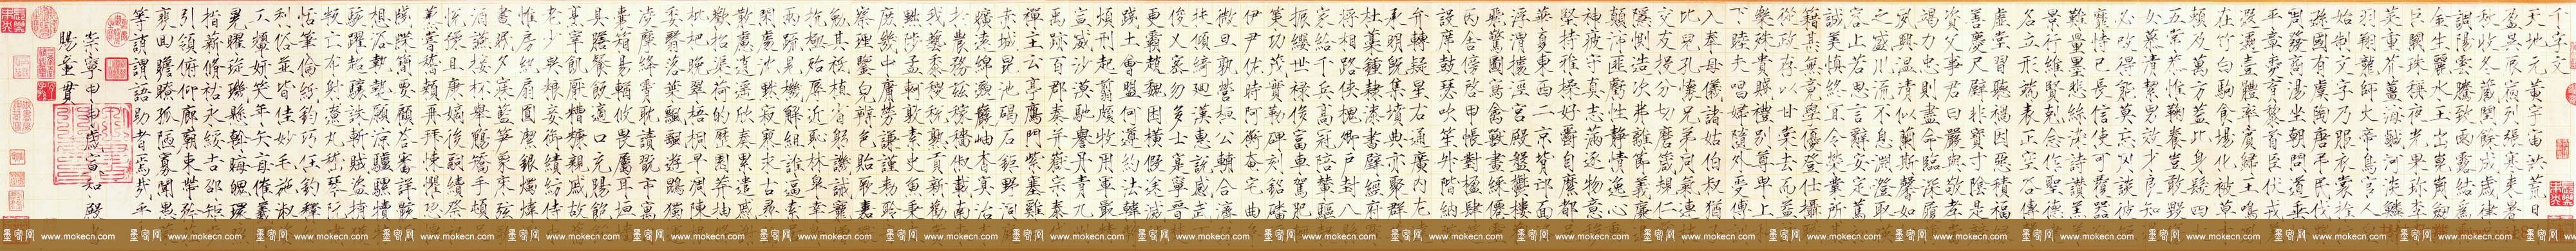 千字文
天地元黃宇宙洪荒日
盈昃辰宿列張寒來暑
秋收冬藏閏餘成歲律
調陽雲騰致雨露結為
金生麗水玉出崑崗劍
巨闕珠稱夜光果珍李
菜重芥薑海鹹河淡鱗
羽翔龍師火帝鳥官人
始制文字乃服衣裳推
遜國有虞陶唐弔民伐
周發商湯坐朝問道垂
平章愛育黎首臣伏戎
遐邇壹體率賓歸王鳴
在竹白駒食場化被草
賴及萬方蓋此身髮四
五常恭惟鞠養豈敢毀
女慕清潔男效才良知
必改得能莫忘罔談彼
靡恃己長信使可覆器
難量墨悲絲染詩讚羔
景行維賢剋念作聖德
名立形端表正空谷傳
虛堂習聽禍因惡積福
善慶尺璧非寶寸陰是
資父事君曰嚴與敬孝
竭力忠則盡命臨深履
夙興溫清似蘭斯馨如
之盛川流不息淵澄取
容止若思言辭安定篤
誠美慎終宜令榮業所
籍甚無竟學優登仕攝
從政存以甘棠去而益
樂殊貴賤禮別尊卑上
下睦夫唱婦隨外受傅
入奉母儀諸姑伯叔猶
比兒孔懷兄弟同氣連
交友投分切磨箴規仁
隱惻造次弗離節義廉
顛沛匪虧性靜情逸心
神疲守真志滿逐物意
堅持雅操好爵自縻都
華夏東西二京背邙面
浮渭據涇宮殿盤鬱樓
飛驚圖寫禽獸畫綵僊
丙舍傍啟甲帳對楹肆
設席鼓瑟吹笙升階納
弁轉疑星右通廣內左
承明既集墳典亦聚群
杜稿鍾隸漆書壁經府
將相路俠槐卿戶封八
家給千兵高冠陪輦驅
振纓世祿侈富車駕肥
策功茂實勒碑刻銘磻
伊尹佐時阿衡奄宅曲
微旦孰營桓公輔合濟
扶傾綺迴漢惠說感武
俊乂密勿多士寔寧晉
更霸趙魏困橫假途滅
踐土會盟何遵約法韓
煩刑起翦頗牧用軍最
宣威沙漠馳譽丹青九
禹跡百郡秦并嶽宗恒
禪主云亭鴈門紫塞雞
赤城昆池碣石鉅野洞
曠遠綿邈巖岫杳冥治
於農務茲稼穡俶載南
我藝黍稷稅熟貢新勸
黜陟孟軻敦素史魚秉
庶幾中庸勞謙謹敕聆
察理鑒貌辨色貽厥嘉
勉其祗植省躬譏誡寵
抗極殆辱近恥林皋幸
兩疏見機解組誰逼索
閑處沉默寂寥求古尋
散慮逍遙欣奏累遣慼
歡招渠荷的歷園莽抽
枇杷晚翠梧桐早凋陳
委翳落葉飄颻遊鵾獨
凌摩絳霄耽讀翫市寓
囊箱易輶攸畏屬耳垣
具膳餐飯適口充腸飽
烹宰飢厭糟糠親戚故
老少異糧妾御績紡侍
帷房紈扇圓潔銀燭煒
晝眠夕寐藍筍象床弦
酒讌接杯舉觴矯手頓
悅豫且康嫡後嗣續祭
蒸嘗稽顙再拜悚懼恐
牋牒簡要顧答審詳骸
想浴執熱願涼驢騾犢
駭躍超驤誅斬賊盜捕
叛亡布射遼丸嵇琴阮
恬筆倫紙鈞巧任釣釋
利俗並皆佳妙毛施淑
工顰妍笑年矢每催羲
晃曜璇璣懸斡晦魄環
指薪脩祜永綏吉邵矩
引領俯仰廊廟束帶矜
徘徊瞻眺孤陋寡聞愚
等誚謂語助者焉哉乎
崇寧甲申歲宣和殿
賜童貫
墨客网 www.mokecn.com